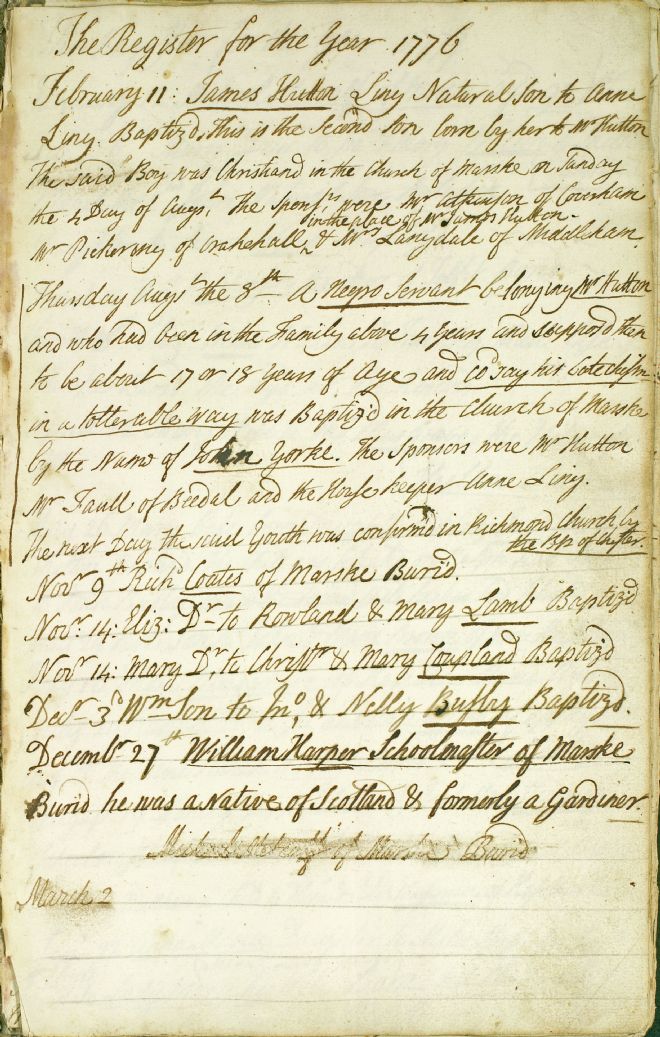 The Register for the Year 1776
February 11: James Hutton Ling Natural Son to Anne
Ling. Baptiz'd, this is the Second Son born by her to Mr Hutton
The said Boy was Christian'd in the Church of Marske on Sunday
the 4 Day of Augst. The Sponsrs were Mr Atkinson of Coverham
in the place of Mr James Hutton.
Mr Pickering of Crakehall, & Mrs Langdale of Middleham.
Thursday Augst the 8th a Negro Servant belonging Mr Hutton
and who had been in the Family above 4 Years and suppos'd then
to be about 17 or 18 Years of Age and cod say his Catechism
in a tollerable way was Baptiz'd in the Church of Marske
by the Name of John Yorke. The Sponsers were Mr Hutton
Mr Faull of Beedal and the House keeper Anne Ling.
The next Day the said Youth was confirm'd in Richmond Church by
the Bp of Chester.
Novr 9th Richd Coates of Marske Buried.
Novr. 14: Eliz: Dr to Rowland & Mary Lamb Baptiz'd
Novr 14: Mary Dr. to Christr & Mary Coupland Baptiz'd
Decr 3d Wm Son to Jno. & Nelly Busby Baptiz'd.
Decembr 27th William Harper Schoolmaster of Marske
Buried he was a Native of Scotland & formerly a Gardiner.
of Marske Buried
March 2